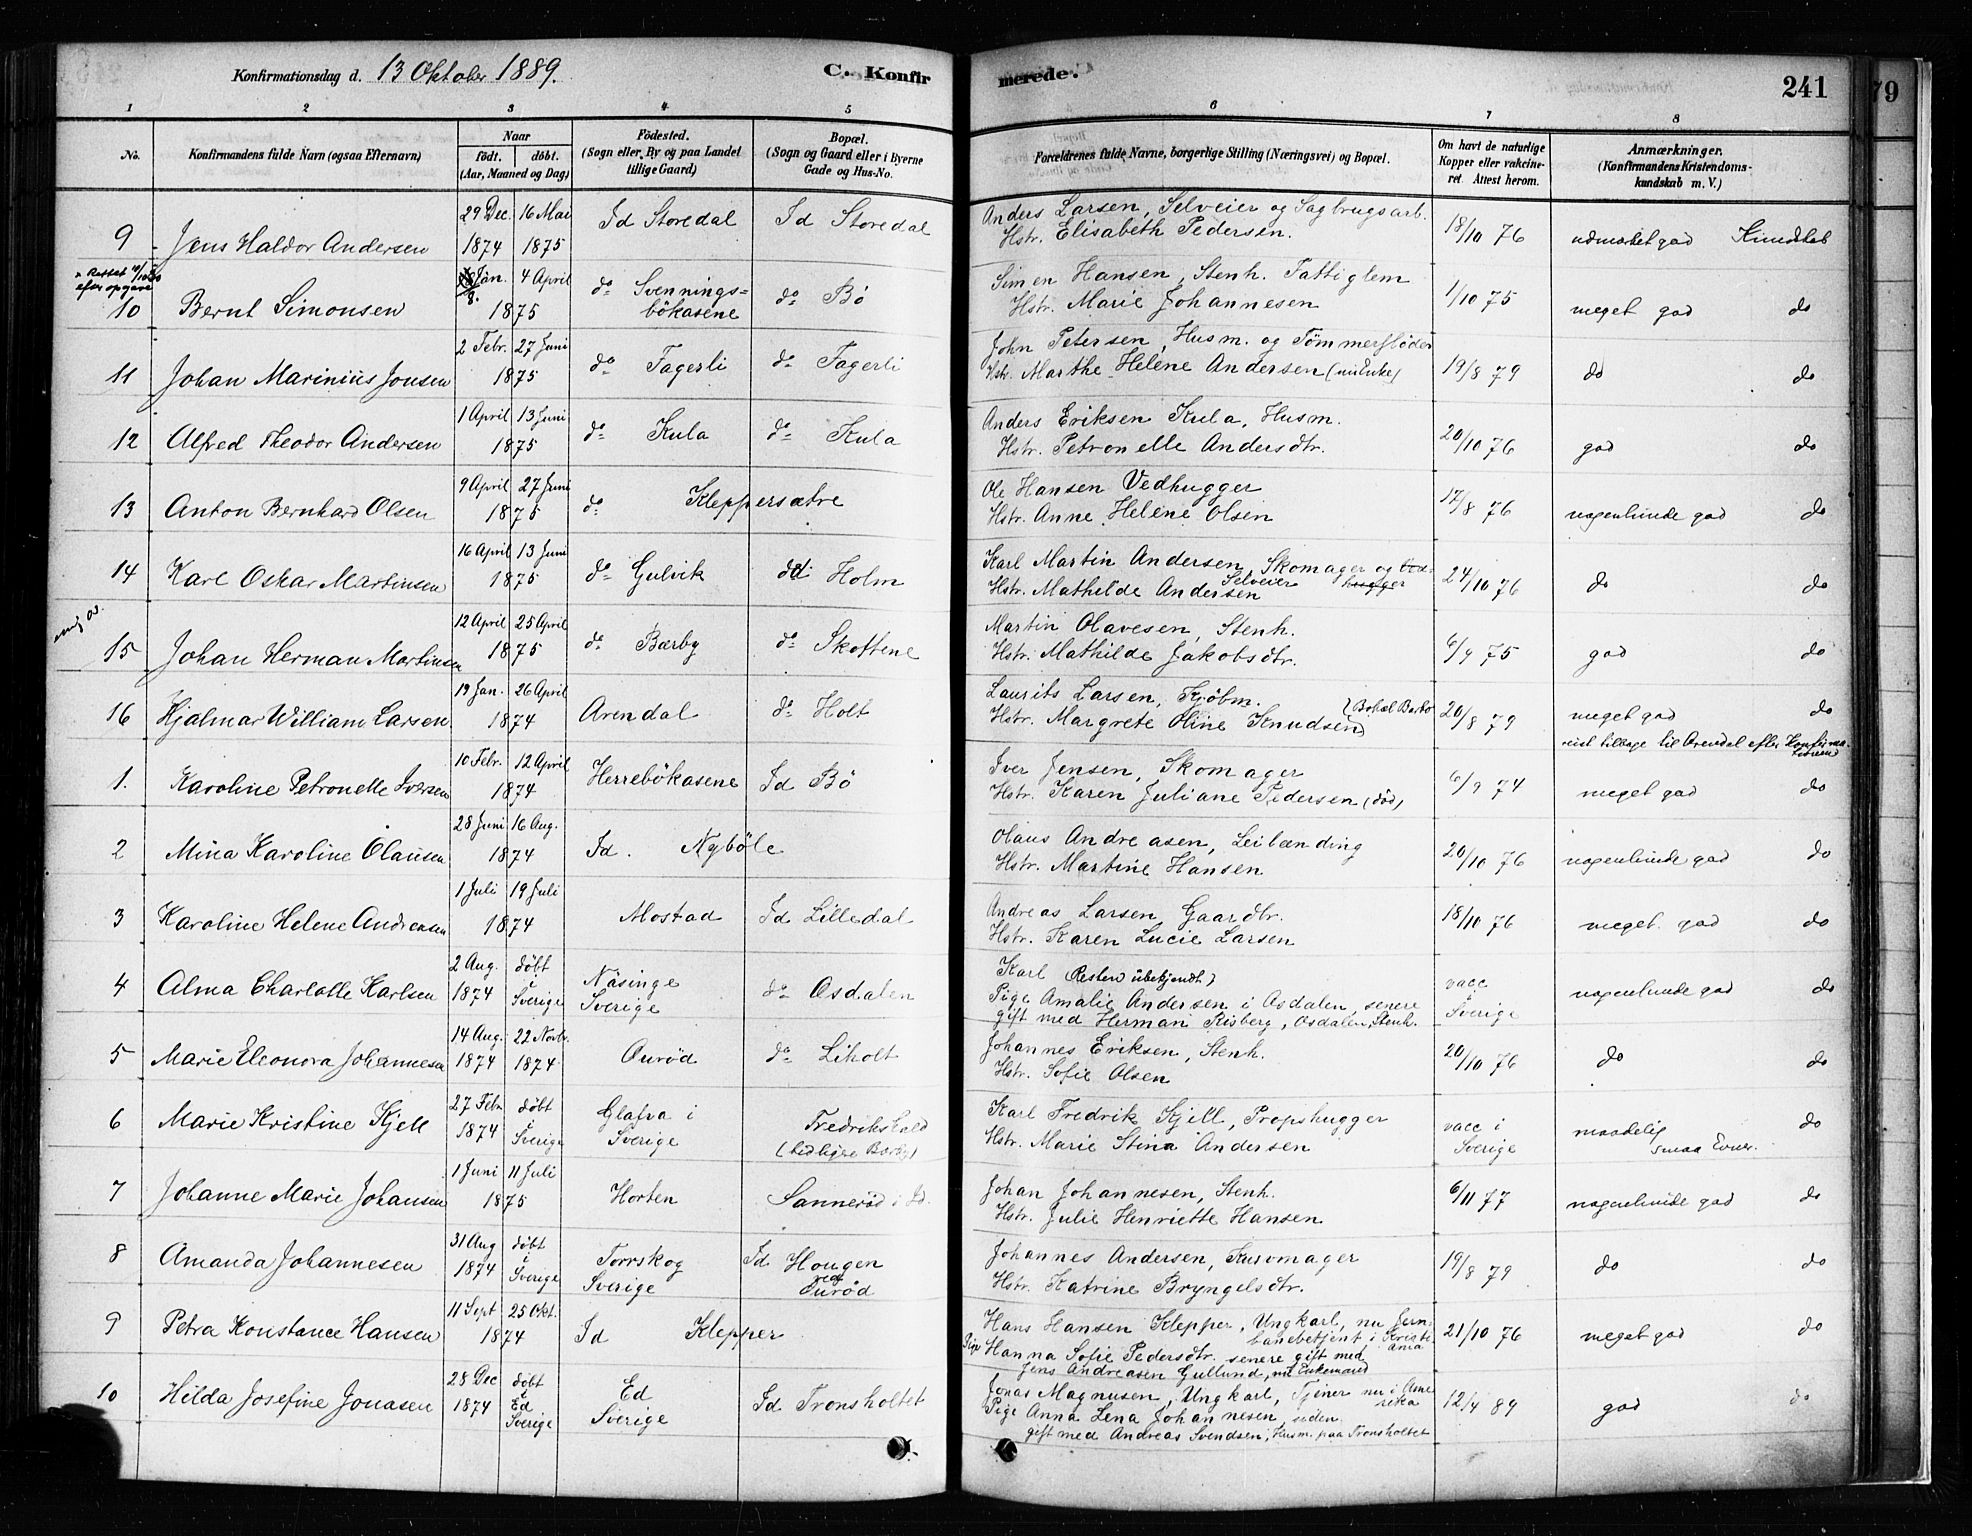 Konfirmationsdag d. 13 Oktober 1889. C. Konfir merede. 241 79
1 2 3 4 5 6 7 8
No. Konfirmandens fulde Navn (ogsaa Efternavn) Naar födt. döbt. (Aar, Maaned og Dag) Födested. (Sogn eller By og paa Landet tillige Gaard) Bopæl. (Sogn og Gaard eller i Byerne Gade og Hus-No. Forældrenes fulde Navne, borgerlige Stilling (Næringsvei) og Bopæl. Om havt de naturlige Kopper eller vakcineret. Attest herom. Anmærkninger. (Konfirmandens Kristendomskundskab m. V.)
29 Dec. 16 Mai Id Storedal Id Storedal Anders Larsen, Selveier og Sagbrugsarb.
9 Jens Haldor Andersen 1874 1875 Hstr. Elisabeth Pedersen. 18/10 76 udmærket god Kundskab
Rettet efter opgave
Jan. 4 April do Svennings= do Bö Simen Hansen, Stenh. Fattiglem
10 Bernt Simonsen 8. 1875 bökasene Hstr. Marie Johannesen 1/10 75 meget god do
2 Febr. 27 Juni do Fagerli do Fagerli John Petersen, Husm. og Tömmerflöder
11 Johan Marinius Jonsen 1875 Hstr. Marthe Helene Andersen 19/8 79 do do
1 April 13 Juni do Kula do Kula Anders Eriksen Kula, Husm.
12 Alfred Theodor Andersen 1875 Hstr. Petronelle Andersdtr. 20/10 76 god do
9 April 27 Juni Ole Hansen Vedhugger
13 Anton Bernhard Olsen 1875 do Kleppersætre Hstr. Anne Helene Olsen 17/8 76 nogenlunde god do
16 April 13 Juni Karl Martin Andersen, Skomager og Ved-
14 Karl Oskar Martinsen 1875 do Gulvik do Holm Selveier hugger
Hstr. Mathilde Andersen 24/10 76 do do
12 April 25 April do Bærby do Skottene Martin Olavesen, Stenh.
15 Johan Herman Martinsen 1875 Hstr. Mathilde Jakobsdtr. 6/9 75 god do
19 Jan. 26 April Laurits Larsen, Kjöbm.
16 Hjalmar William Larsen 1874 Arendal do Holt Hstr. Margrete Oline Knudsen (Bopæl Barbo) 20/8 79 meget god do
reist tilbage til Arendal efter Konfirmationen
10 Febr. 12 April Iver Jensen, Skomager
1. Karoline Petronelle Iversen 1874 Herrebökasene Id Bö Hstr. Karen Juliane Pedersen (död) 6/9 74 meget god do
28 Juni 16 Aug. Olaus Andreasen, Leilænding
2 Mina Karoline Olausen 1874 Id. Nyböle Hstr. Martine Hansen 20/10 76 nogenlunde god do
1 Juli 19 Juli Andreas Larsen, Gaardbr.
3 Karoline Helene Andreasen 1874 Mostad Id Lilledal Hstr. Karen Lucie Larsen 18/10 76 meget god do
2 Aug. döbt Karl (Resten ubekjendt)
4 Alma Charlotte Karlsen 1874 i Sverige Näsinge Sverige do Osdalen Pige Amalie Andersen i Osdalen, senere
gift med Herman Risberg, Osdalen, Stenh. vacc i Sverige nogenlunde god do
14 Aug. 22 Novbr. Johannes Eriksen, Stenh.
5 Marie Eleonora Johannesen 1874 1874 Auröd do Liholt Hstr. Sofie Olsen 20/10 76 do do
27 Febr. döbt Glafva i Fredrikshald Karl Fredrik Kjell, Propshugger
6 Marie Kristine Kjell 1874 i Sverige Sverige (tidligere Bærby) Hstr. Marie Stina Andersen vacc i Sverige maadelig smaa Evner. do
1 Juni 11 Juli Johan Johannesen, Stenh.
7 Johanne Marie Johansen 1875 Horten Sanneröd i Id. Hstr. Julie Henriette Hansen 6/11 77 nogenlunde god do
31 Aug döbt Johannes Andersen, Kurvmager
8 Amanda Johannesen 1874 i Sverige Torrskog Sverige Id Hougen ved Auröd Hstr. Katrine Bryngelsdtr. 19/8 79 do do
11 Sept 25 Okt. Hans Hansen Klepper, Ungkarl, nu Jern-
9 Petra Konstance Hansen 1874 Id Klepper banebetjent i Kristiania
Pige Hanna Sofie Pedersdtr. senere gift med 21/10 76 meget god do
Jens Andreasen Gullund, nu Enkemand
28 Dec döbt Jonas Magnusen, Ungkarl, Tjener nu i Amerika
10 Hilda Josefine Jonasen 1874 i Ed Sverige Ed Sverige Id Tronsholtet Pige Anna Lena Johannesen, siden 12/4 89 god do
gift med Andreas Svendsen, Husm. paa Tronsholtet